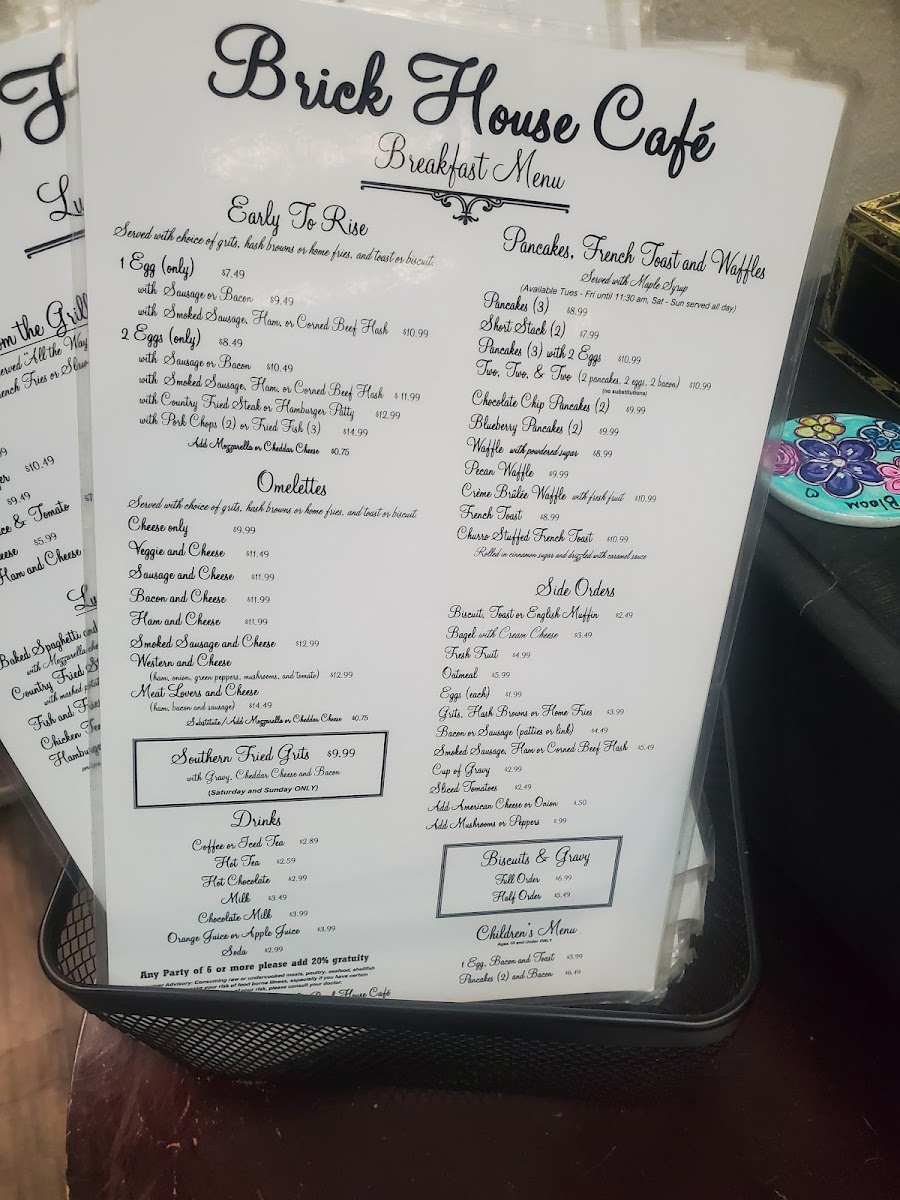 Brick House Café
Breakfast Menu
Early To Rise
Served with choice of grits, hash browns or home fries, and toast or biscuit.
1 Egg (only) $7.49
with Sausage or Bacon $9.49
with Smoked Sausage, Ham, or Corned Beef Hash $10.99
2 Eggs (only) $8.49
with Sausage or Bacon $10.49
with Smoked Sausage, Ham, or Corned Beef Hash $11.99
with Country Fried Steak or Hamburger Patty $12.99
with Pork Chops (2) or Fried Fish (3) $14.99
Add Mozzarella or Cheddar Cheese $0.75
Omelettes
Served with choice of grits, hash browns or home fries, and toast or biscuit.
Cheese only $9.99
Veggie and Cheese $11.49
Sausage and Cheese $11.99
Bacon and Cheese $11.99
Ham and Cheese $11.99
Smoked Sausage and Cheese $12.99
Western and Cheese
(ham, onion, green peppers, mushrooms, and tomato) $12.99
Meat Lovers and Cheese
(ham, bacon and sausage) $14.49
Substitute/Add Mozzarella or Cheddar Cheese $0.75
Southern Fried Grits $9.99
with Gravy, Cheddar Cheese and Bacon
(Saturday and Sunday ONLY)
Drinks
Coffee or Iced Tea $2.89
Hot Tea $2.59
Hot Chocolate $2.99
Milk $3.49
Chocolate Milk $3.99
Orange Juice or Apple Juice $3.99
Soda $2.99
Any Party of 6 or more please add 20% gratuity
Advisory: Consuming raw or undercooked meats, poultry, seafood, shellfish
your risk of food borne illness, especially if you have certain
of your risk, please consult your doctor.
Brick House Café
Pancakes, French Toast and Waffles
Served with Maple Syrup
(Available Tues - Fri until 11:30 am, Sat - Sun served all day)
Pancakes (3) $8.99
Short Stack (2) $7.99
Pancakes (3) with 2 Eggs $10.99
Two, Two, & Two (2 pancakes, 2 eggs, 2 bacon) $10.99
(no substitutions)
Chocolate Chip Pancakes (2) $9.99
Blueberry Pancakes (2) $9.99
Waffle with powdered sugar $8.99
Pecan Waffle $9.99
Crème Brûlée Waffle with fresh fruit $10.99
French Toast $8.99
Churro Stuffed French Toast $10.99
Rolled in cinnamon sugar and drizzled with caramel sauce
Side Orders
Biscuit, Toast or English Muffin $2.49
Bagel with Cream Cheese $3.49
Fresh Fruit $4.99
Oatmeal $5.99
Eggs (each) $1.99
Grits, Hash Browns or Home Fries $3.99
Bacon or Sausage (patties or link) $4.49
Smoked Sausage, Ham or Corned Beef Hash $5.49
Cup of Gravy $2.99
Sliced Tomatoes $2.49
Add American Cheese or Onion $.50
Add Mushrooms or Peppers $.99
Biscuits & Gravy
Full Order $6.99
Half Order $5.49
Children's Menu
Ages 10 and Under ONLY
1 Egg, Bacon and Toast $5.99
Pancakes (2) and Bacon $6.49
H
Lu
the Grill
"All the Way
French Fries or
$10.49
$9.49
& Tomato
$5.99
Ham and Cheese
Lu
Baked Spaghetti and
with Mozzarella
Country Fried
with mashed
Fish and
Chicken
Bloom